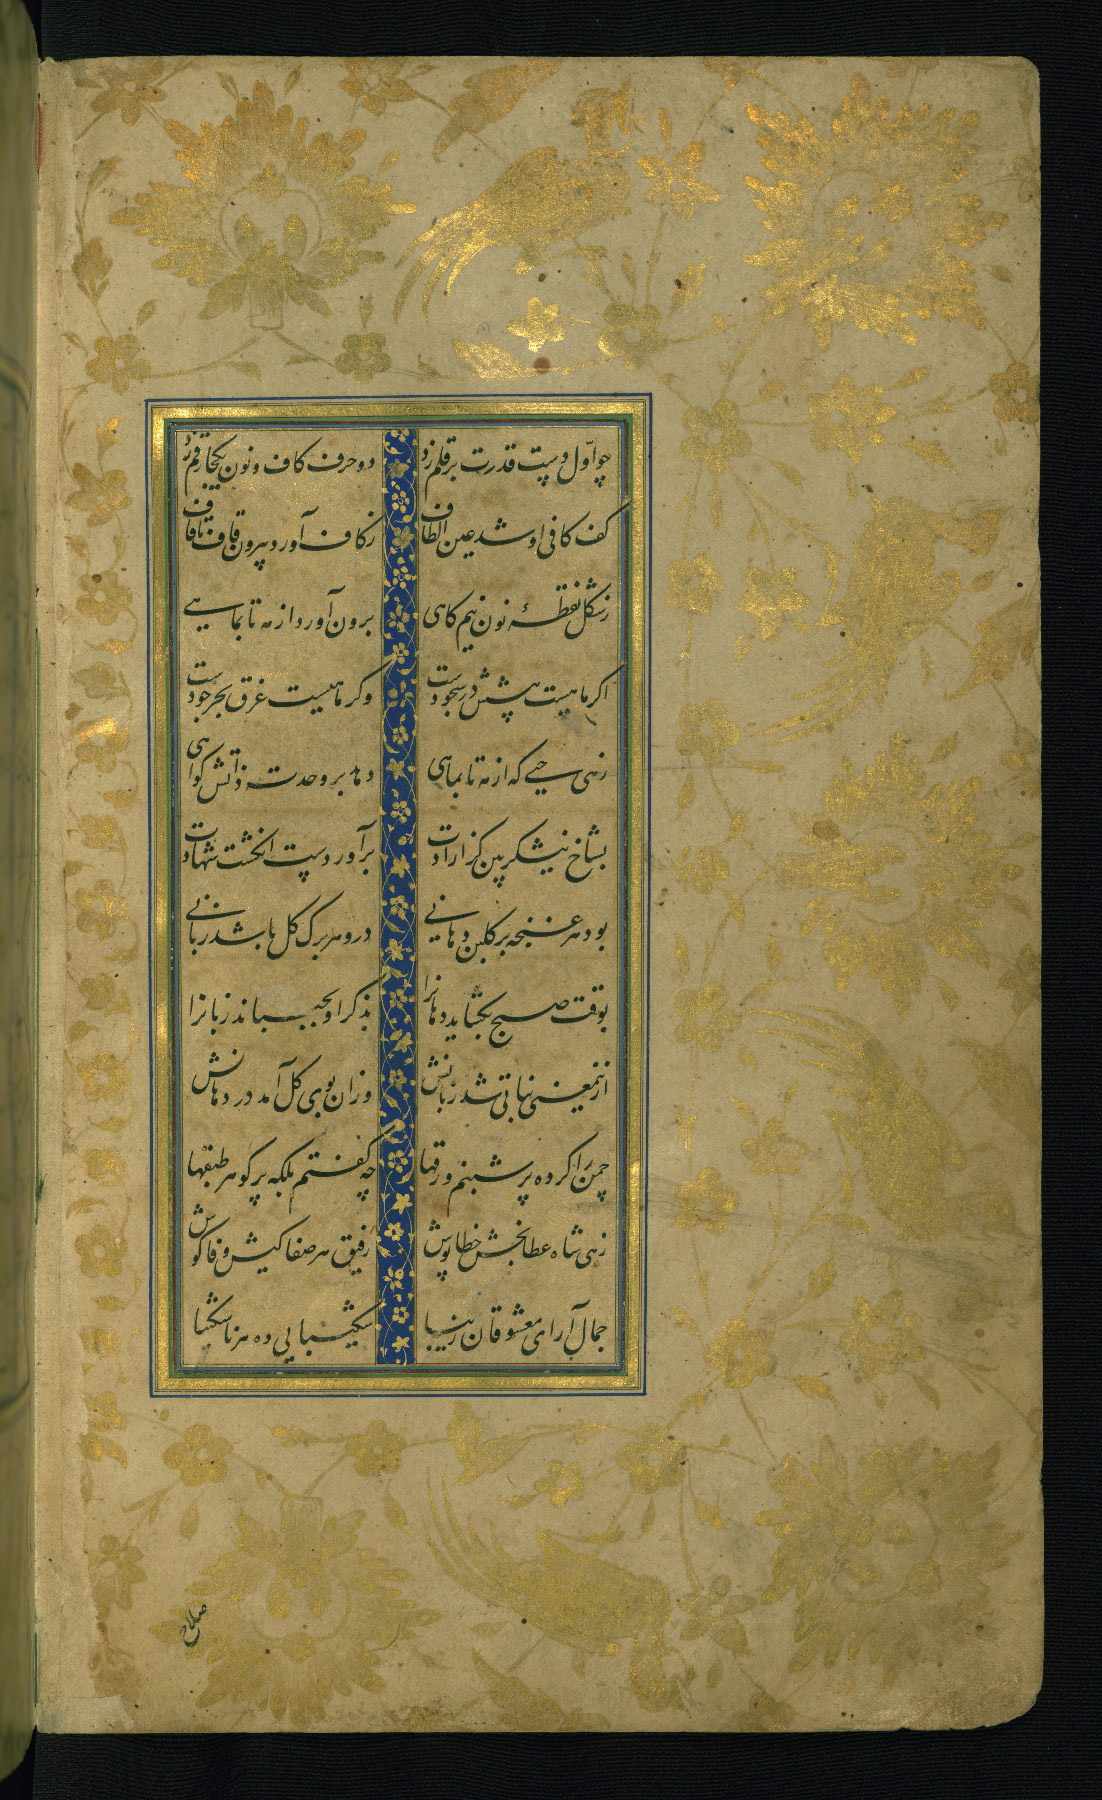 چو اوّل دست قدرت بر قلم زد دو حرف کاف و نون یکجا رقم زد
کف کافی او شد عین الطاف ز کاف آورد بیرون قاف تا قاف
ز شکل نقطهٔ نون نیم کاهی برون آورد از مه تا بماهی
اکر ماهیست پیشش در سجودست وکر ماهیست غرق بحر جودست
زهی حیی که از مه تا بماهی دهد بر وحدت ذاتش کواهی
بشاخ نیشکر بین کز ارادت برآوردست انکشت شهادت
بود هر غنچه بر کلبن دهانی درو هر برک کل باشد زبانی
بوقت صبح بکشاید دهانرا بذکر او بجنباند زبانرا
ازینمعنی نباتی شد زبانش وزان بوی کل آمد در دهانش
چمن را کرده پر شبنم ورقها چه کفتم بلکه پر کوهر طبقها
زهی شاه عطابخش خطاپوش رفیق هر صفا کیش وفا کوش
جمال آرای معشوقان زیبا شکیبایی ده هر ناشکیبا